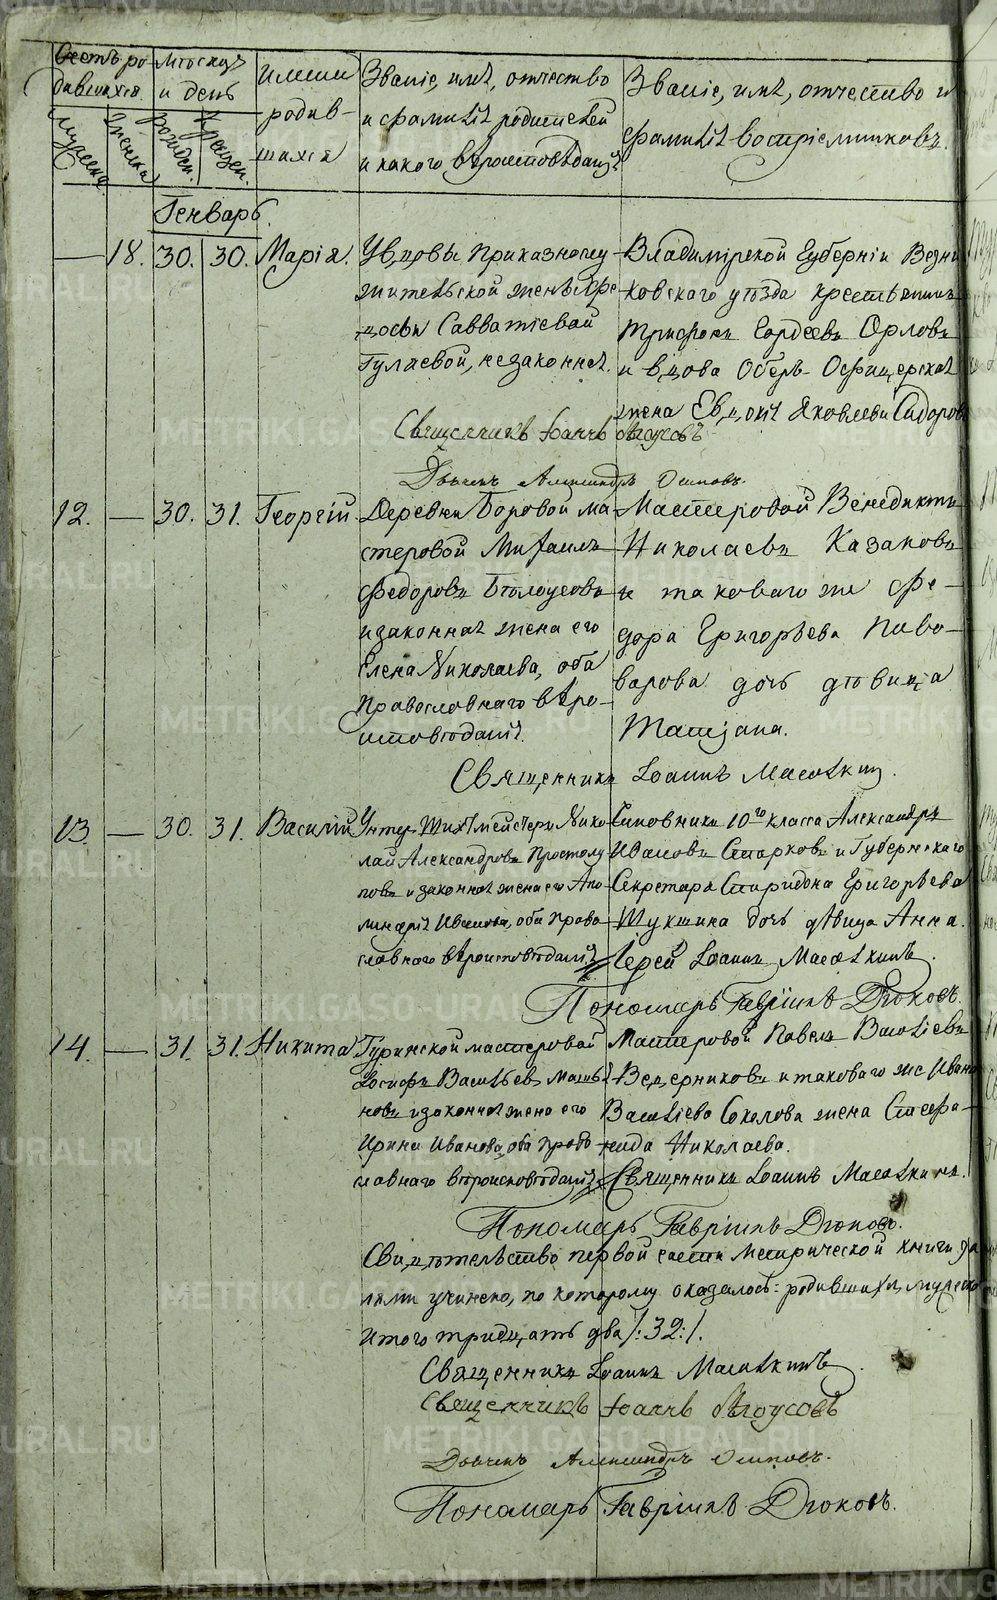 Счетъ ро-
дившихся.
Мѣсяцъ
и день
Мужеска.
Женска
рожден.
Крещен.
Имена
родив-
шихся
Званіе, имя, отчество
и фамилія родителей
и какого вѣроисповѣданія
Званіе, имя, отчество и
фамилія воспріемниковъ.
Генварь.
— 18. 30. 30. Марія.
Удовы приказнослу-
жительской жены Ѳе-
досьи Савватіевой
Гуляевой, незаконная.
Владимірской Губерніи Вязни
ковскаго уѣзда крестьянинъ
Трифонъ Гордеевъ Орловъ
и вдова Оберъ-Офицерская
жена Евдокія Яковлева Сидоров
Священникъ Іоаннъ
Дьячекъ Александръ Осиповъ.
12. — 30. 31. Георгій
Деревни Боровой ма-
стеровой Михаилъ
Федоровъ Бѣлоусовъ
и законная жена его
Елена Николаева, оба
Православнаго вѣро-
исповѣданія.
Мастеровой Венедиктъ
Николаевъ Казаковъ
и таковаго же Фе-
дора Григорьева Пиво-
варова дочь дѣвица
Татіана.
Священникъ Іоаннъ
13. — 30. 31. Василій
Унтеръ Шихтмейстеръ Нико
лай Александровъ Простолу
повъ и законная жена его Апо-
линарія Иванова, оба право
славнаго вѣроисповѣданія
Чиновникъ 10го класса Александръ
Ивановъ Старковъ и Губернскаго
Секретаря Спиридона Григорьева
Шукшина дочь дѣвица Анна.
Іерей Іоаннъ
Пономарь Гавріилъ Дюковъ.
14. — 31. 31. Никита
Туринской мастеровой
Іосифъ Васильевъ
новъ и законная жена его
Ирина Иванова, оба право
славнаго вѣроисповѣданія
Мастеровой Павелъ Васильевъ
Ведерниковъ и таковаго же Ивана
Васильева Соколова жена Стефа-
нида Николаева.
Священникъ Іоаннъ
Пономарь Гавріилъ Дюковъ.
Свидѣтельство первой части Метрической книги
нами учинено, по которому оказалось: родившихся мужеска
Итого тридцать два /:32:/.
Священникъ Іоаннъ
Священникъ Іоаннъ
Дьячекъ Александръ Осиповъ.
Пономарь Гавріилъ Дюковъ.
METRIKI.GASO-URAL.RU